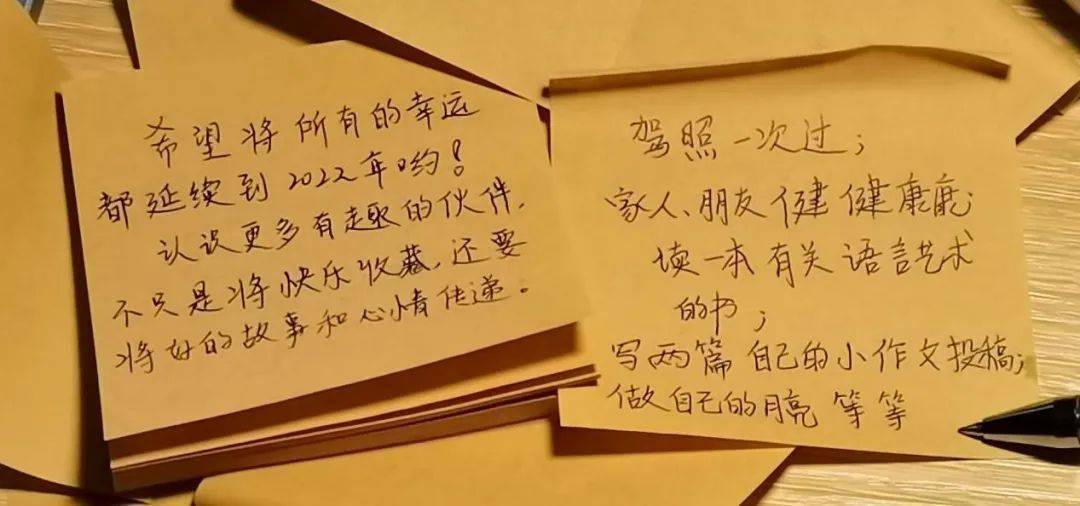 希望将所有的幸运
都延续到2022年哟!
认识更多有趣的伙伴,
不只是将快乐收藏,还要
将好的故事和心情传递。
驾照一次过;
家人、朋友健健康康;
读一本有关语言艺术
的书;
写两篇自己的小作文投稿;
做自己的月亮等等